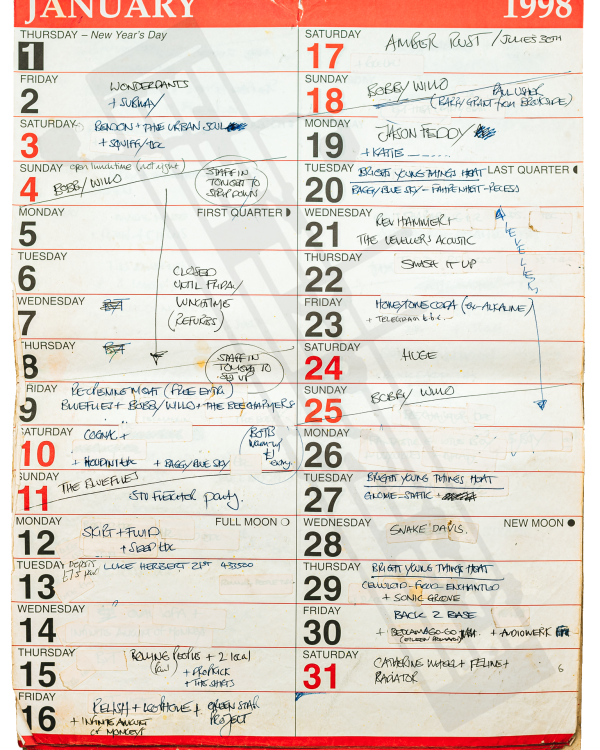 JANUARY 1998
THURSDAY – New Year's Day
1
FRIDAY
2
WONDERPANTS
+ SUBWAY
SATURDAY
3
RENDON + THE URBAN SOUL
+ SQUIFF/tbc
SUNDAY open lunchtime (not night)
4
BOBBY WILLO
STAFF IN
TONIGHT TO
STRIP DOWN
MONDAY FIRST QUARTER
5
TUESDAY
6
CLOSED
UNTIL FRIDAY
WEDNESDAY
7
LUNCHTIME
(REFURBS)
THURSDAY
8
STAFF IN
TONIGHT TO
SET UP
FRIDAY
9
REOPENING NIGHT (FREE ENTRY)
BLUEFLIES + BOBBY WILLO + THE BEECHARMERS
SATURDAY
10
COGNAC +
+ HOUDINI tbc + BAGGY BLUE SKY
BOTB
Warm-up
£1
entry
SUNDAY
11
THE BLUEFLIES
party.
MONDAY FULL MOON
12
SKIRT + FLUID
+ SLEEP tbc
TUESDAY DEPOSIT
£75
13
LUKE HERBERT 21ST 433500
WEDNESDAY
14
THURSDAY
15
ROLLING PEOPLE + 2 local
+ PROPKICK
+ THE SHIRTS
FRIDAY
16
RELISH + + GREEN STAR
PROJECT
+ INFINITE AMOUNT
OF MONKEYS
SATURDAY
17
AMBER RUST / JULIES 30TH
SUNDAY
18
BOBBY WILLO PAUL USHER
(BARRY GRANT from BROOKSIDE)
MONDAY
19
JASON FEDDY
+ KATIE
TUESDAY BRIGHT YOUNG THINGS HEAT LAST QUARTER
20
BAGGY BLUE SKY – FAHRENHEIT – RECESS
WEDNESDAY
21
REV HAMMER +
THE LEVELLERS ACOUSTIC
LEVELLERS
THURSDAY
22
SMASH IT UP
FRIDAY
23
HONEYTONE CODA (ex-ALKALINE)
+ TELEGRAM tbc.
SATURDAY
24
HUGE
SUNDAY
25
BOBBY WILLO
MONDAY
26
TUESDAY
27
BRIGHT YOUNG THINGS HEAT
GNOME – STATIC +
WEDNESDAY NEW MOON
28
SNAKE DAVIS.
THURSDAY
29
BRIGHT YOUNG THINGS HEAT
CELLULOID – FIELD – ENCHANTED
+ SONIC GROOVE
FRIDAY
30
BACK 2 BASE
+ BEDLAMAGO-GO + AUDIOWERK
SATURDAY
31
CATHERINE WHEEL + FELINE +
RADIATOR
6